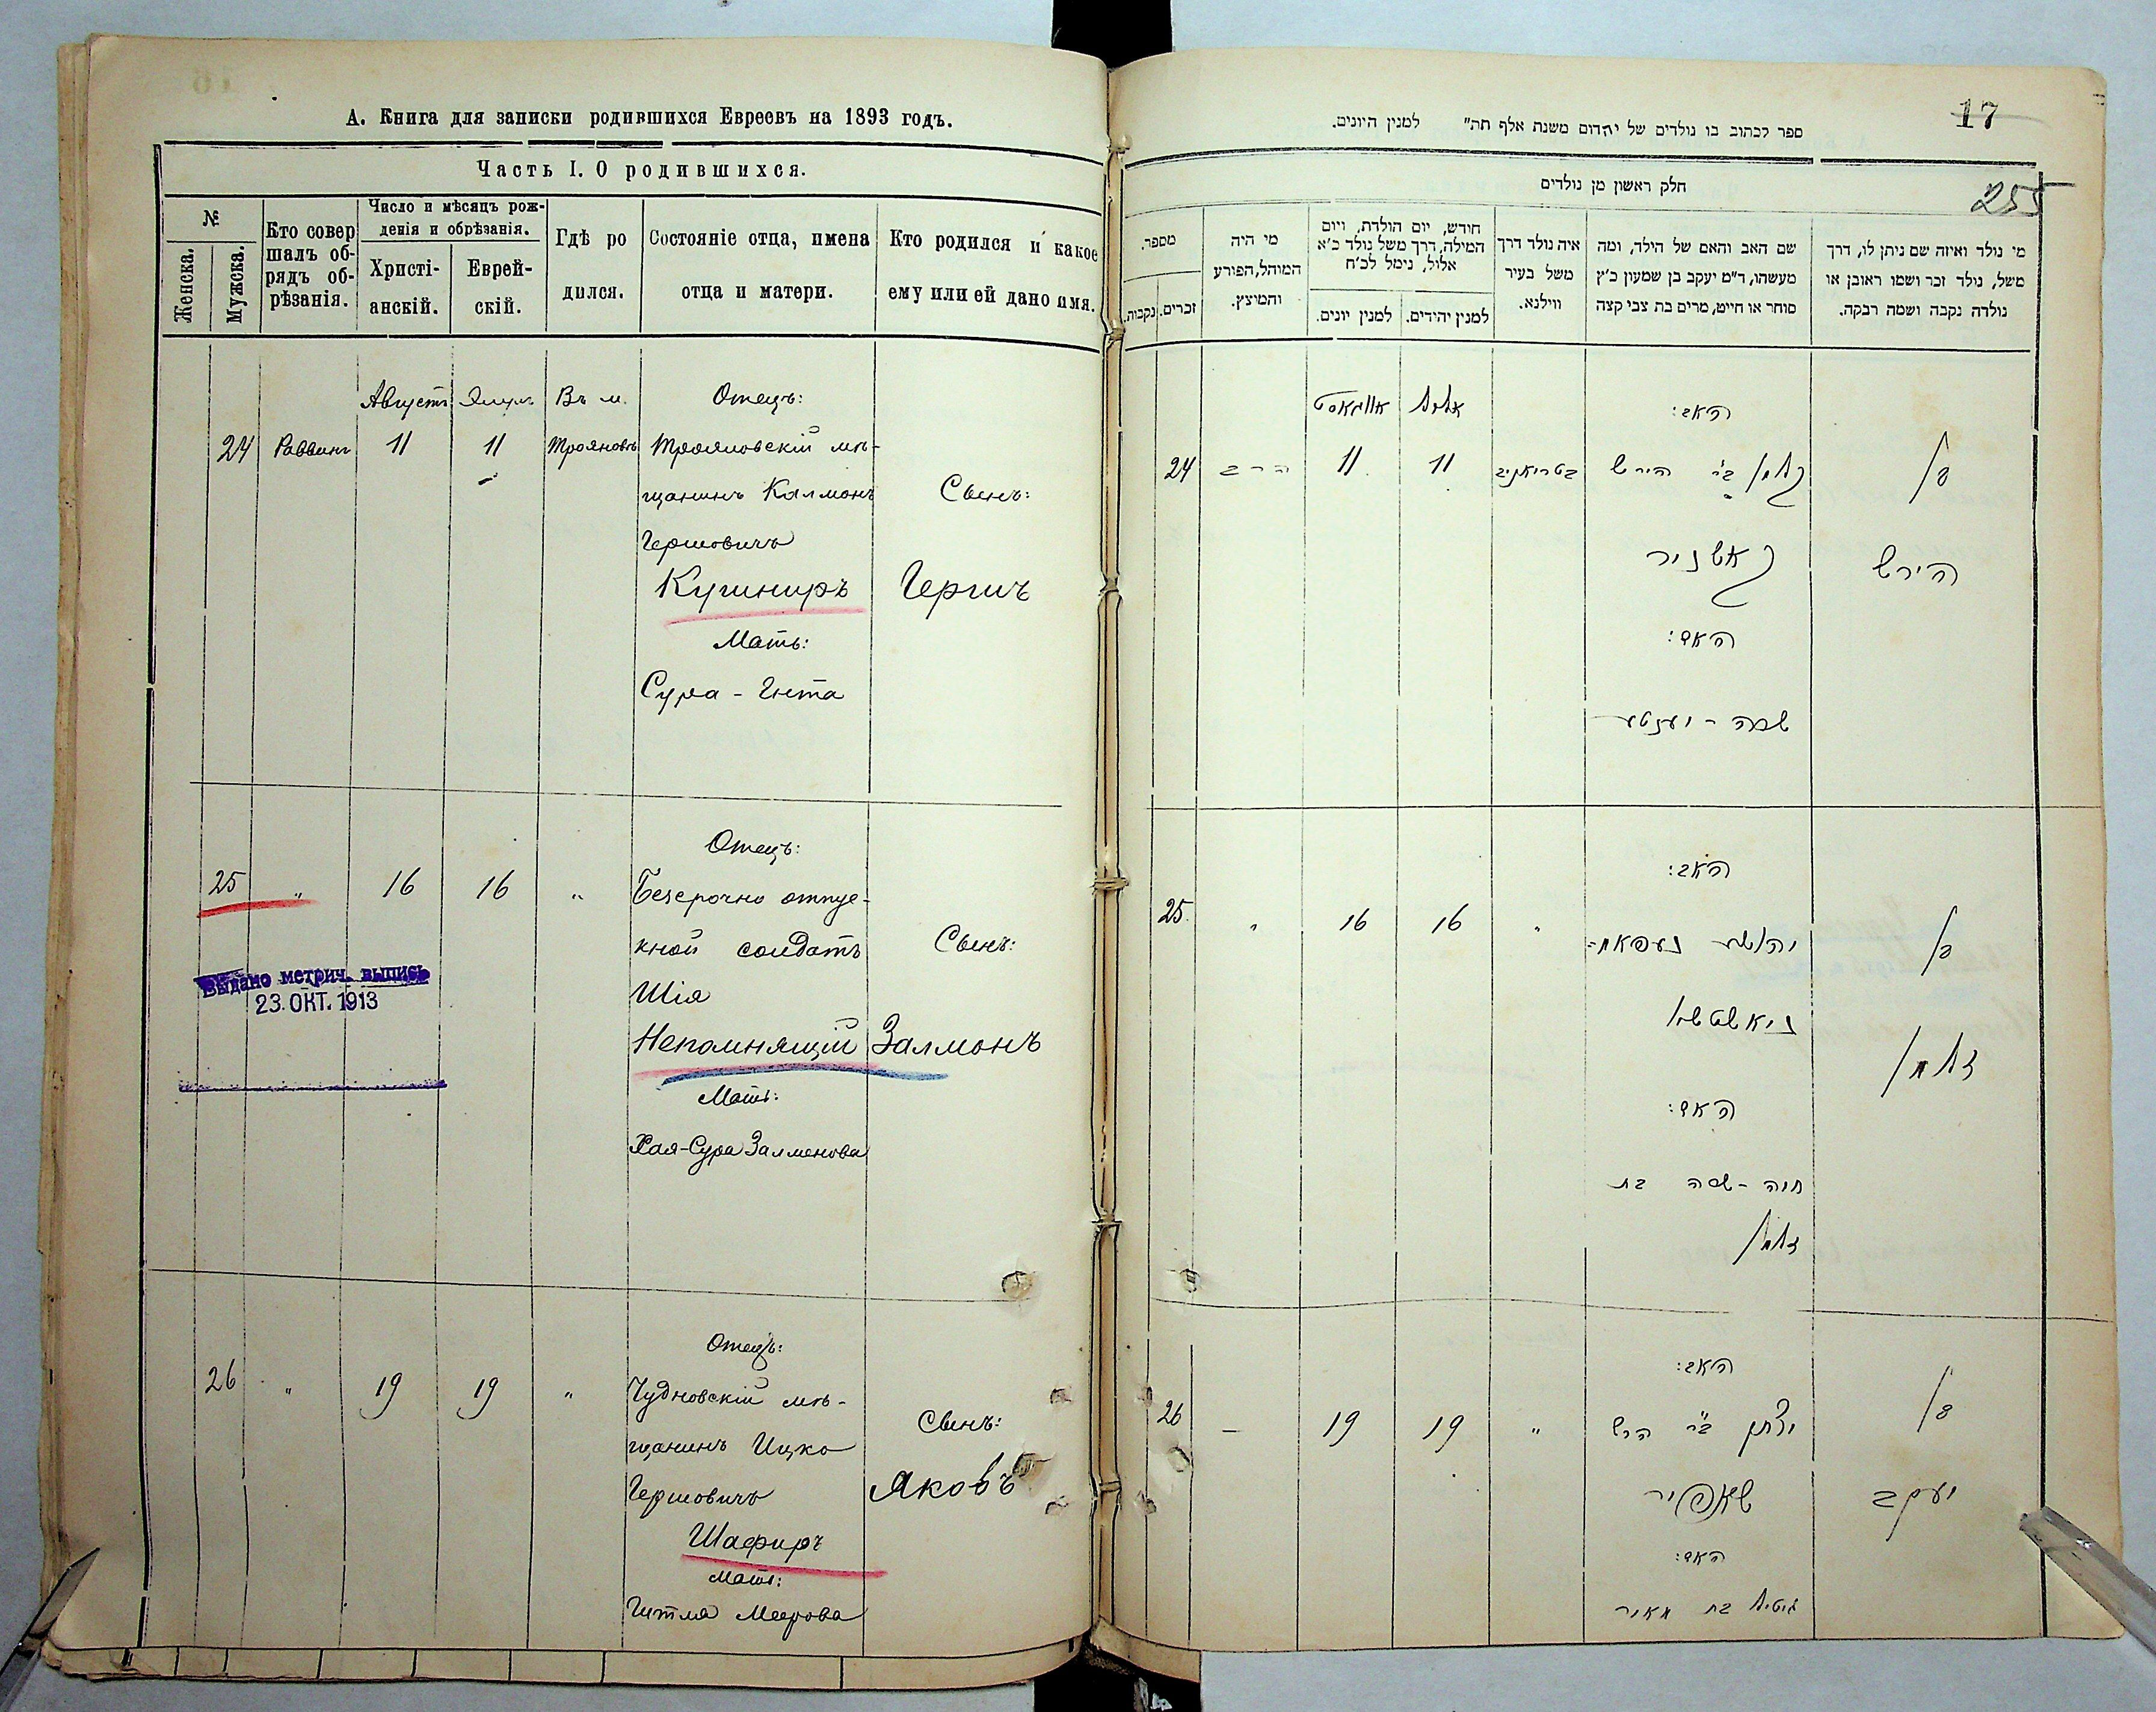 А. Книга для записки родившихся Евреевъ на 1893 годъ.
Часть I. О родившихся.
№
Женска.
Мужска.
Кто совер
шалъ об-
рядъ об-
рѣзанія.
Число и мѣсяцъ рож-
денія и обрѣзанія.
Христі-
анскій.
Еврей-
скій.
Гдѣ ро
дился.
Состояніе отца, имена
отца и матери.
Кто родился и какое
ему или ей дано имя.
Августъ
Въ м.
Отецъ:
24 Раввинъ 11 11 Трояновъ Трояновскій мѣ-
щанинъ Калмонъ
Сынъ:
Гершовичъ
Кушниръ
Гершъ
Мать:
Сура - Ента
Отецъ:
25 " 16 16 " Безсрочно отпус-
кной солдатъ
Сынъ:
Шія
Непомнящій
Залмонъ
Мать:
Хая-Сура Залменова
Выдано метрич. выпись
23. ОКТ. 1913
Отецъ:
26 " 19 19 " Чудновскій мѣ-
щанинъ Ицко
Сынъ:
Гершовичъ
Яковъ
Шафиръ
Мать:
Гитля Меерова
17
ספר לכתוב בו נולדים של יהדום משנת אלף תה״ למנין היונים.
חלק ראשון מן נולדים
255
מי נולד ואיזה שם ניתן לו, דרך
משל, נולד זכר ושמו ראובן או
נולדה נקבה ושמה רבקה.
שם האב והאם של הילד, ומה
מעשהו, ד״מ יעקב בן שמעון כ״ץ
סוחר או חייט, מרים בת צבי קצה
איה נולד דרך
משל בעיר
ווילנא.
חודש, יום הולדת, ויום
המילה, דרך משל נולד כ״א
אלול, נימל לכ״ח
למנין יהידים.
למנין יונים.
מי היה
המוהל, הפורע
והמוצץ.
מספר.
זכרים.
נקבות.
האב:
אלול
אווגאסט
בן
קלמן ב״ר הירש
בטריאניב
11
11
הרב
24
הירש
קאשניר
האם:
שרה - יענטע
האב:
בן
יהושע נעפאמ-
"
16
16
"
25.
ניאשטשי
זלמן
האם:
חיה - שרה בת
זלמן
האב:
בן
יצחק ב״ר הרש
"
19
19
26
יעקב
שאפיר
האם:
גיטיל בת מאיר